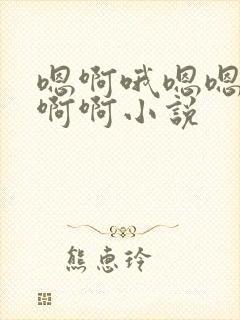 嗯啊哦嗯嗯
啊啊小説
熊惠玲